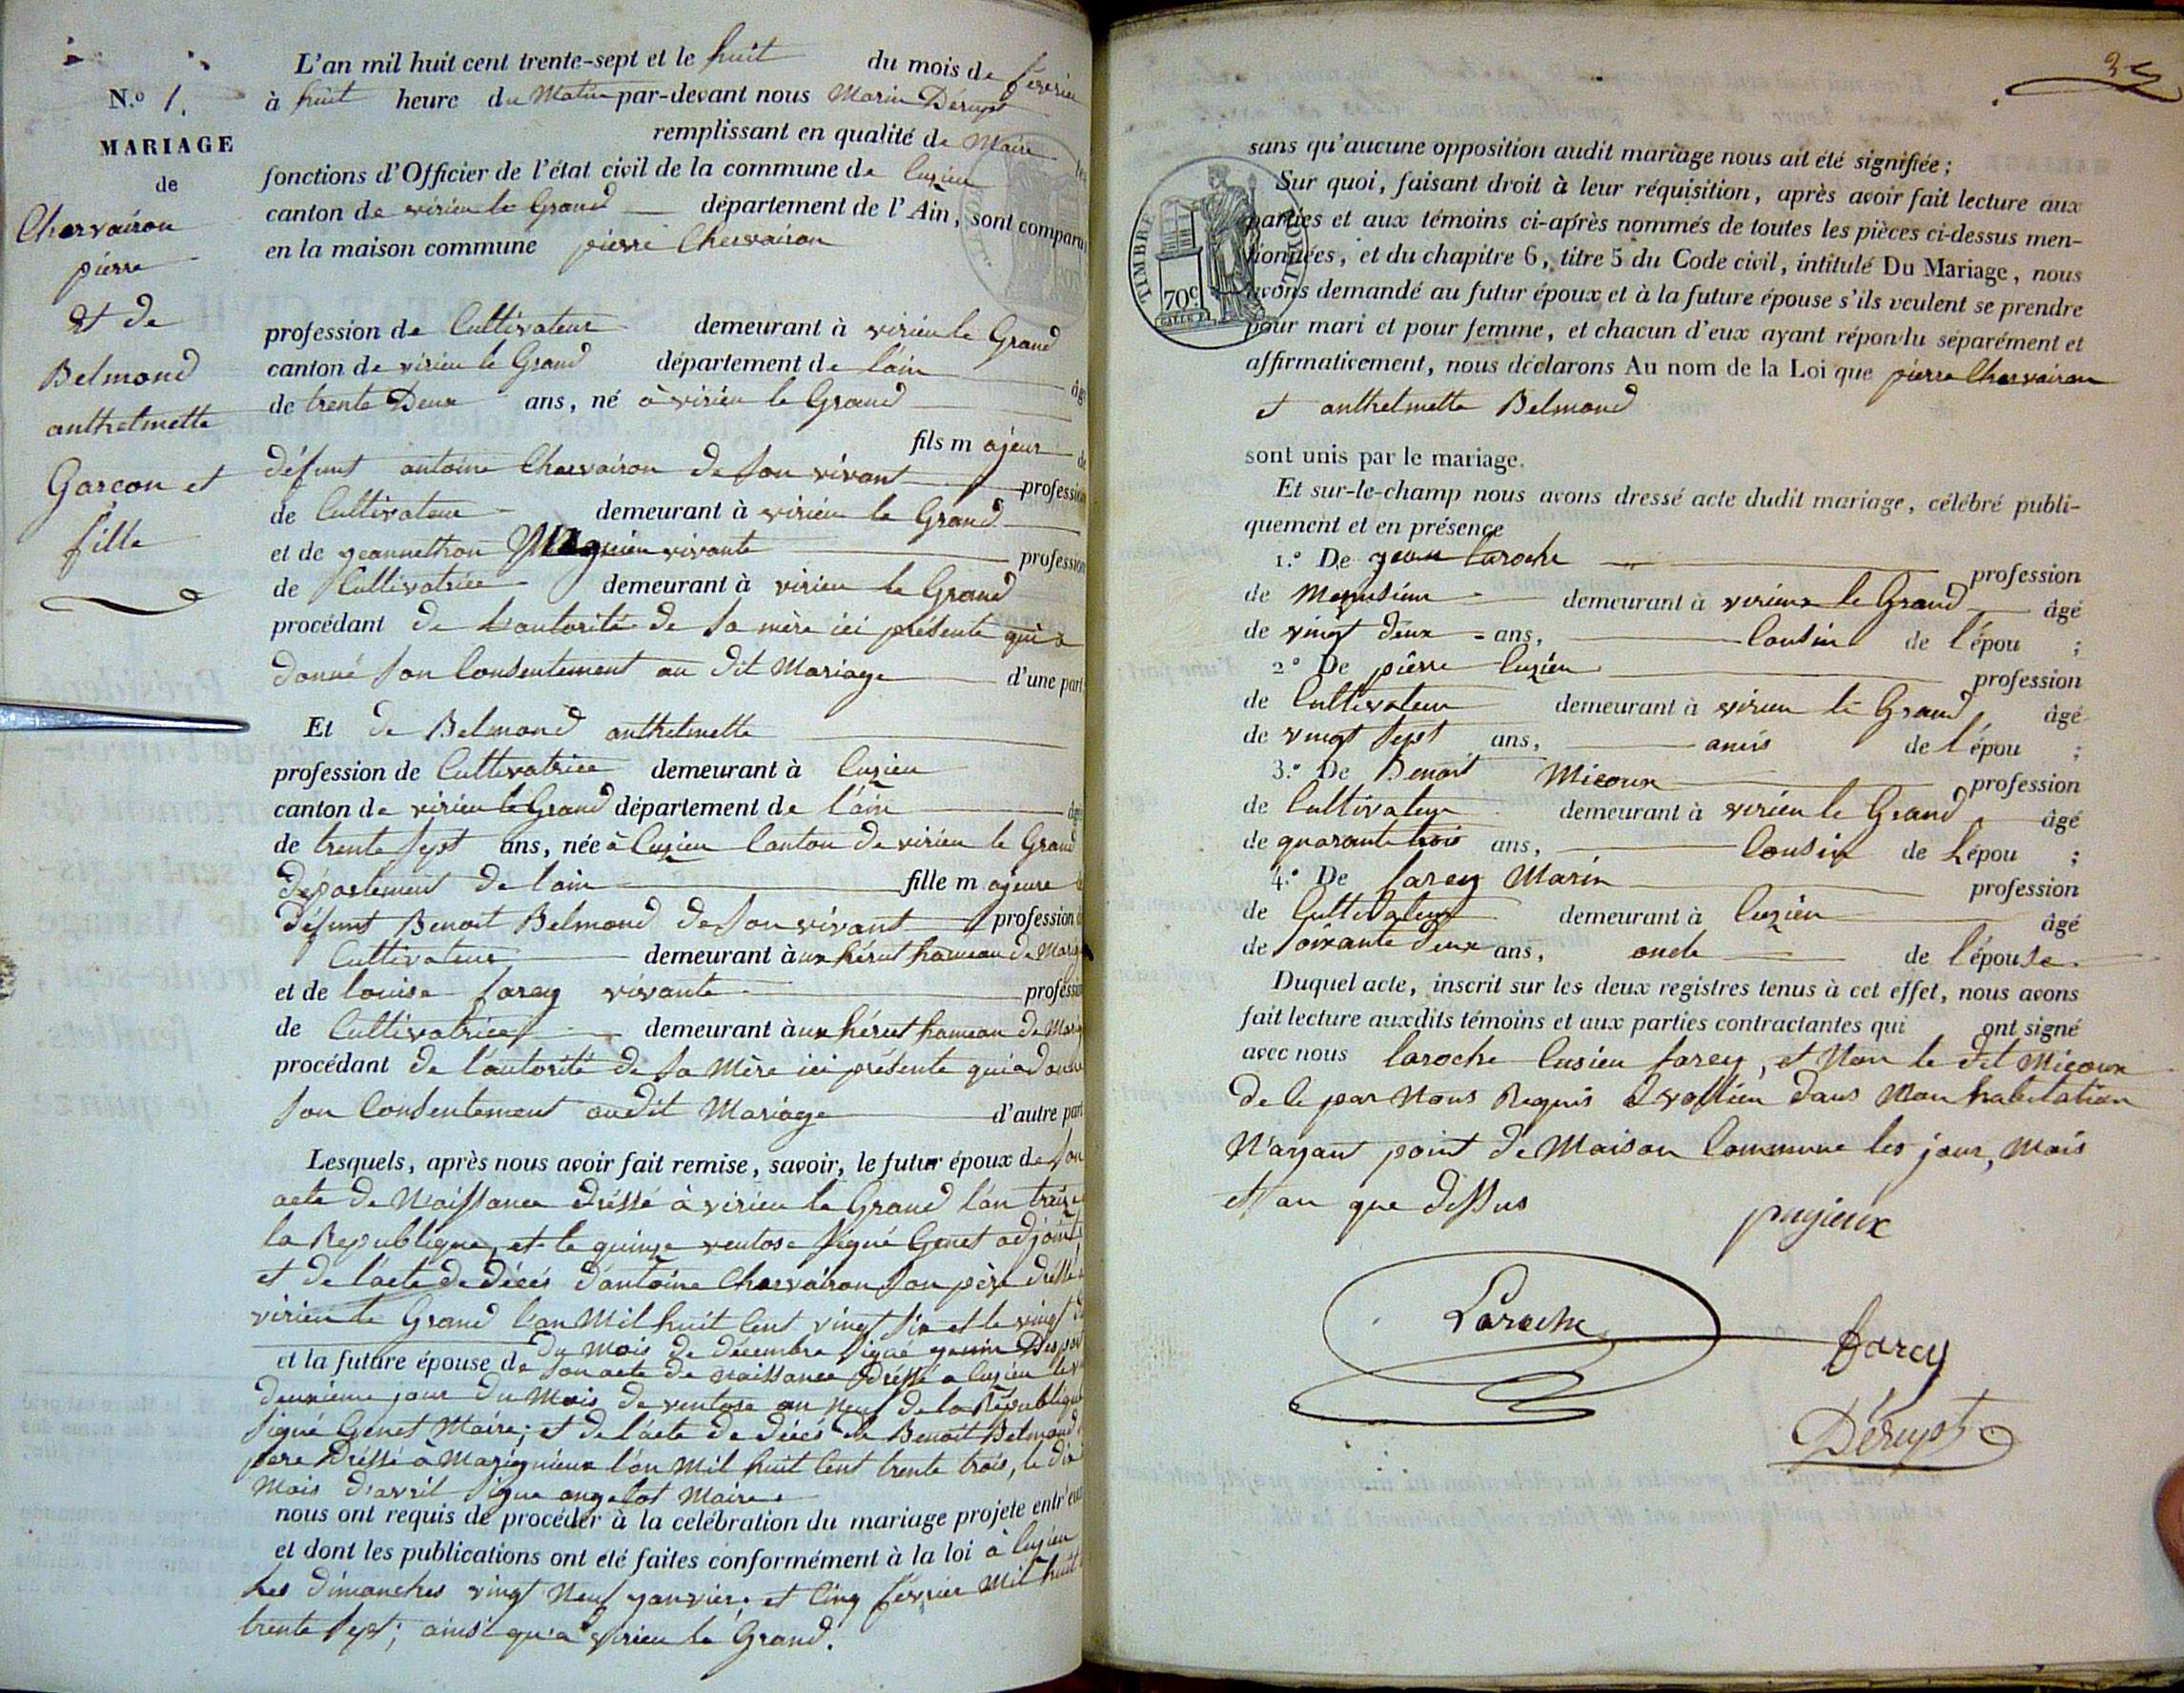 N.º 1.
MARIAGE
de
Charvairon
pierre
et de
Belmond
anthelmette
Garcon et
fille
L'an mil huit cent trente-sept et le huit du mois de février
à huit heure du Matin par-devant nous Marin Déruypt
remplissant en qualité de Maire les
fonctions d'Officier de l'état civil de la commune de Cuzieu
canton de virieu le Grand département de l'Ain, sont comparus
en la maison commune pierre Charvairon
profession de Cultivateur demeurant à virieu le Grand
canton de virieu le Grand département de l'ain âg
de trente Deux ans, né à virieu le Grand
fils majeur de
défunt antoine Charvairon de son vivant profession
de Cultivateur demeurant à virieu le Grand
et de jeannethon vivante profession
de Cultivatrice demeurant à virieu le Grand
procédant de L'autorité de sa mère ici présente qui a
donné son Consentement au dit Mariage d'une part
Et de Belmond anthelmette
profession de Cultivatrice demeurant à Cuzieu
canton de virieu le Grand département de l'ain âg
de trente sept ans, née à Cuzieu Canton de virieu le Grand
département de l'ain fille majeure
défunt Benoit Belmond de son vivant profession d
Cultivateur demeurant à hameau de
et de louise farcy vivante profession
de Cultivatrice demeurant à hameau de
procédant de l'autorité de sa Mère ici présente qui a donné
son Consentement audit Mariage d'autre part
Lesquels, après nous avoir fait remise, savoir, le futur époux de son
acte de Naissance dréssé à virieu le Grand l'an treize
la Republique, et le quinze ventose signé Genet adjoint
et de l'acte de décés d'antoine Charvairon son père dréssé
virieu le Grand l'an Mil huit Cent vingt six et le vingt
du Mois de décembre signé
et la future épouse de son acte de naissance dréssé à Cuzieu le
deuxieme jour du Mois de ventose an neuf de la République
signé Genet Maire; et de l'acte de décés de Benoit Belmond
père dréssé à Marignieux l'an Mil huit Cent trente trois, le dix
Mois d'avril signé angelot Maire
nous ont requis de procéder à la celébration du mariage projeté entr'eux
et dont les publications ont été faites conformément à la loi à Cuzieu
Les dimanches vingt Neuf janvier, et Cinq février Mil huit
trente sept; ainsi qu'à virieu le Grand.
TIMBRE ROYAL
70c
sans qu'aucune opposition audit mariage nous ait été signifiée;
Sur quoi, faisant droit à leur réquisition, après avoir fait lecture aux
parties et aux témoins ci-après nommés de toutes les pièces ci-dessus men-
tionnées, et du chapitre 6, titre 5 du Code civil, intitulé Du Mariage, nous
avons demandé au futur époux et à la future épouse s'ils veulent se prendre
pour mari et pour femme, et chacun d'eux ayant répondu séparément et
affirmativement, nous déclarons Au nom de la Loi que pierre Charvairon
et anthelmette Belmond
sont unis par le mariage.
Et sur-le-champ nous avons dressé acte dudit mariage, célébré publi-
quement et en présence
1.º De jean Laroche profession
de Menusieur demeurant à virieux le Grand âgé
de vingt deux ans, Cousin de l'épou ;
2.º De pierre Cuzieu profession
de Cultivateur demeurant à virieu le Grand âgé
de vingt sept ans, amis de l'épou ;
3.º De Benoit Micoux profession
de Cultivateur demeurant à virieu le Grand âgé
de quarante trois ans, Cousin de L'épou ;
4.º De farcy Marin profession
de Cultivateur demeurant à Cuzieu âgé
de soixante deux ans, oncle de l'épouse.
Duquel acte, inscrit sur les deux registres tenus à cet effet, nous avons
fait lecture auxdits témoins et aux parties contractantes qui ont signé
avec nous Laroche Cusieu farcy, et Non le dit Micoux
de le par Nous Requis dans Mon habitation
N'ayant point de Maison Commune les jour, Mois
et an que dessus
Laroche
farcy
Déruypt